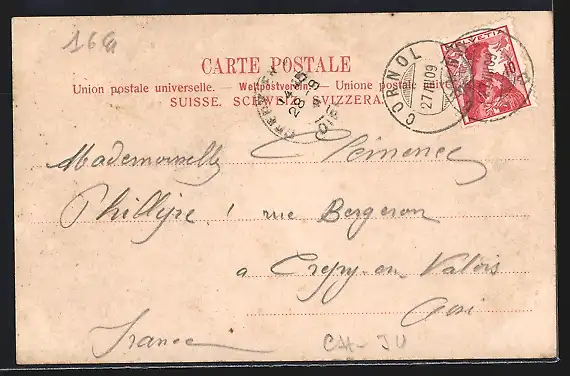 16
CARTE POSTALE
Union postale universelle. — Weltpostverein. — Unione postale
SUISSE. SCHWEIZ. SVIZZERA.
HELVETIA
CORNOL
27 III 09
Mademoiselle Clémence
Phillype rue Bergeron
a Crepy-en-Valois
Oise
France
CH-JU